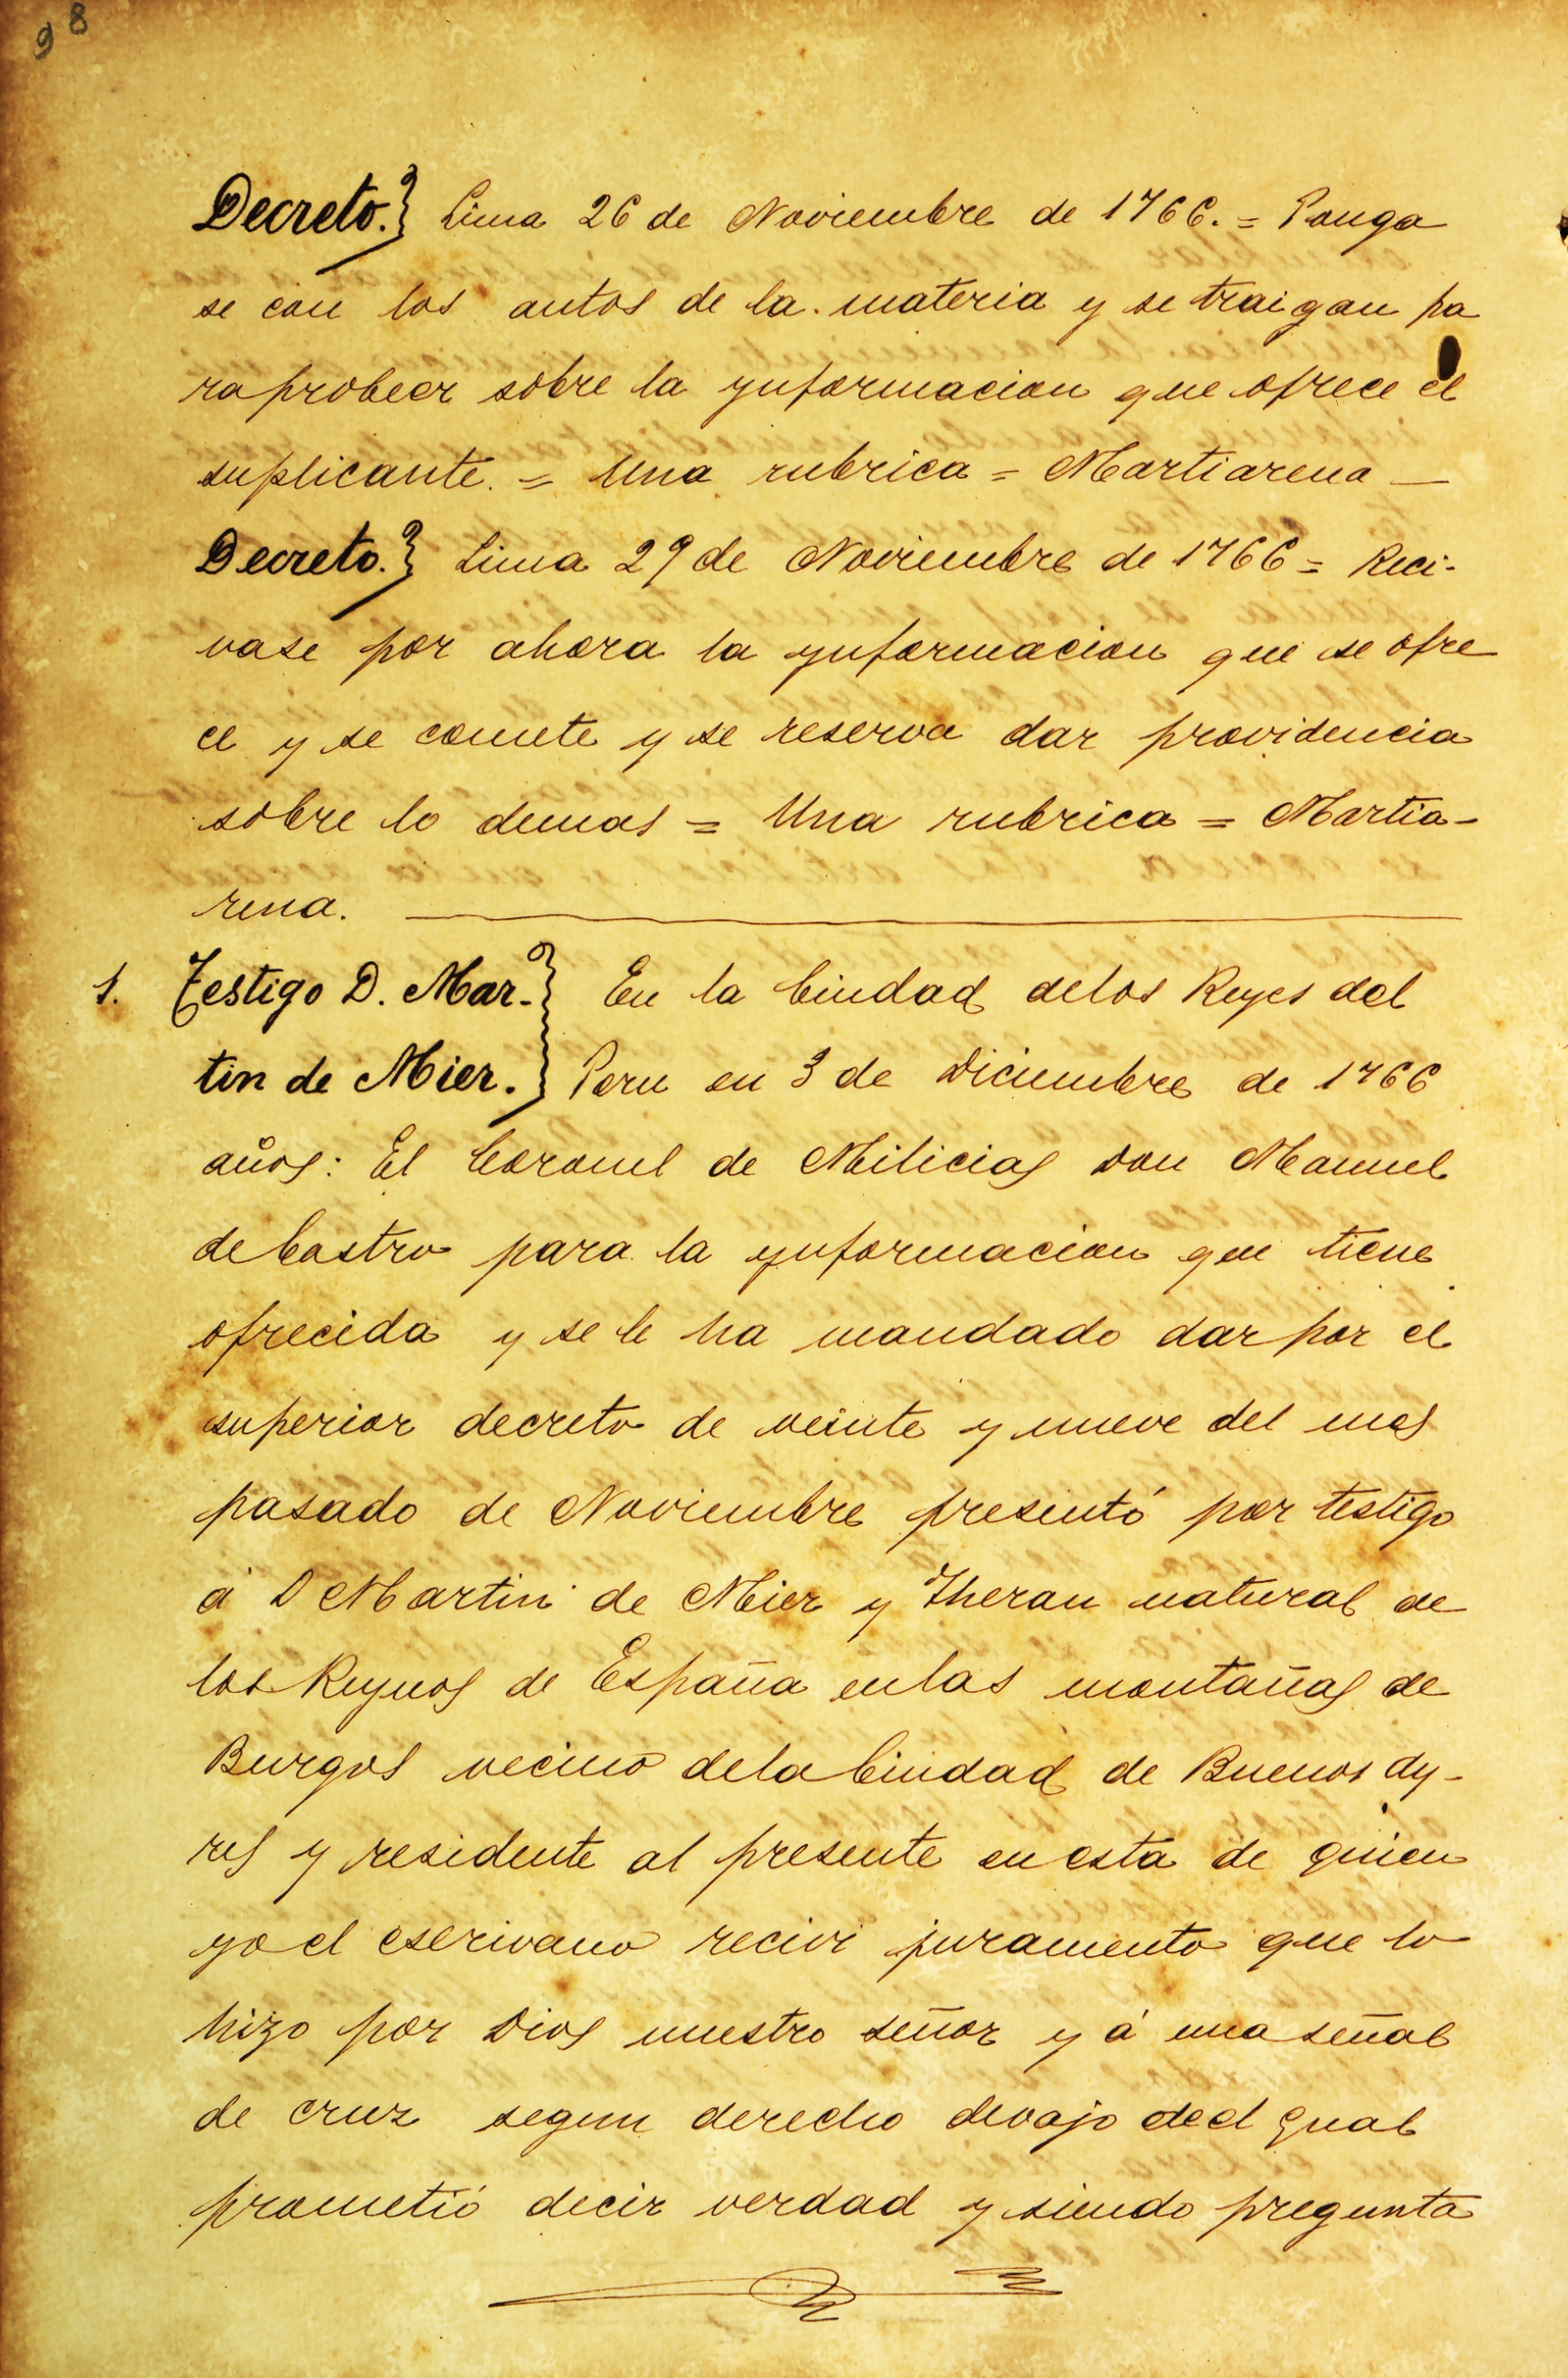 98
Decreto.} Lima 26 de Noviembre de 1766. = Ponga
se con los autos de la materia y se traigan pa
ra probeer sobre la ynformacion que ofrece el
suplicante. = Una rubrica = Martiarena —
Decreto.} Lima 29 de Noviembre de 1766 = Reci-
vase por ahora la ynformacion que se ofre
ce y se comete y se reserva dar providencia
sobre lo demas = Una rubrica = Martia-
rena.
1. Testigo D. Mar-} En la Ciudad delos Reyes del
tin de Mier.} Peru en 3 de Diciembre de 1766
años: El Coronel de Milicias Don Manuel
de Castro para la ynformacion que tiene
ofrecida y se le ha mandado dar por el
superior decreto de veinte y nueve del mes
pasado de Noviembre presentó por testigo
á D Martin de Mier y Theran natural de
los Reynos de España enlas montañas de
Burgos vecino dela Ciudad de Buenos Ay-
res y residente al presente en esta de quien
yo el escrivano recivi juramento que lo
hizo por Dios nuestro señor y á una señal
de cruz segun derecho devajo del qual
prometió decir verdad y siendo pregunta